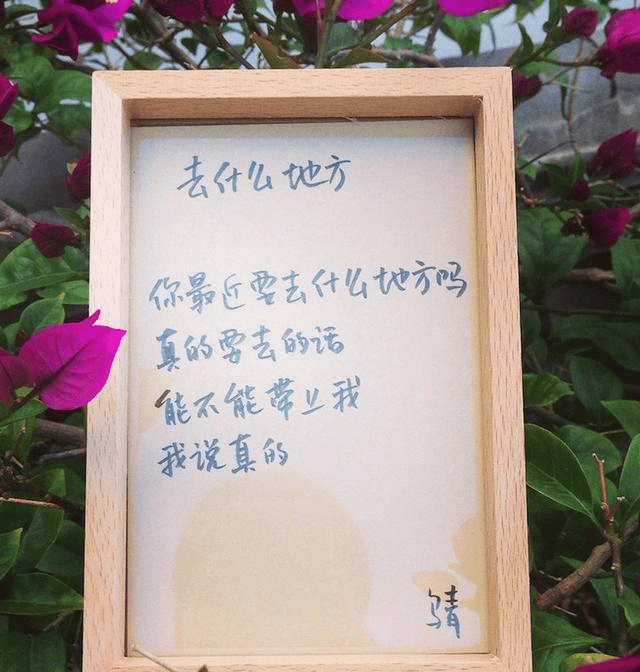 去什么地方
你最近要去什么地方吗
真的要去的话
能不能带上我
我说真的